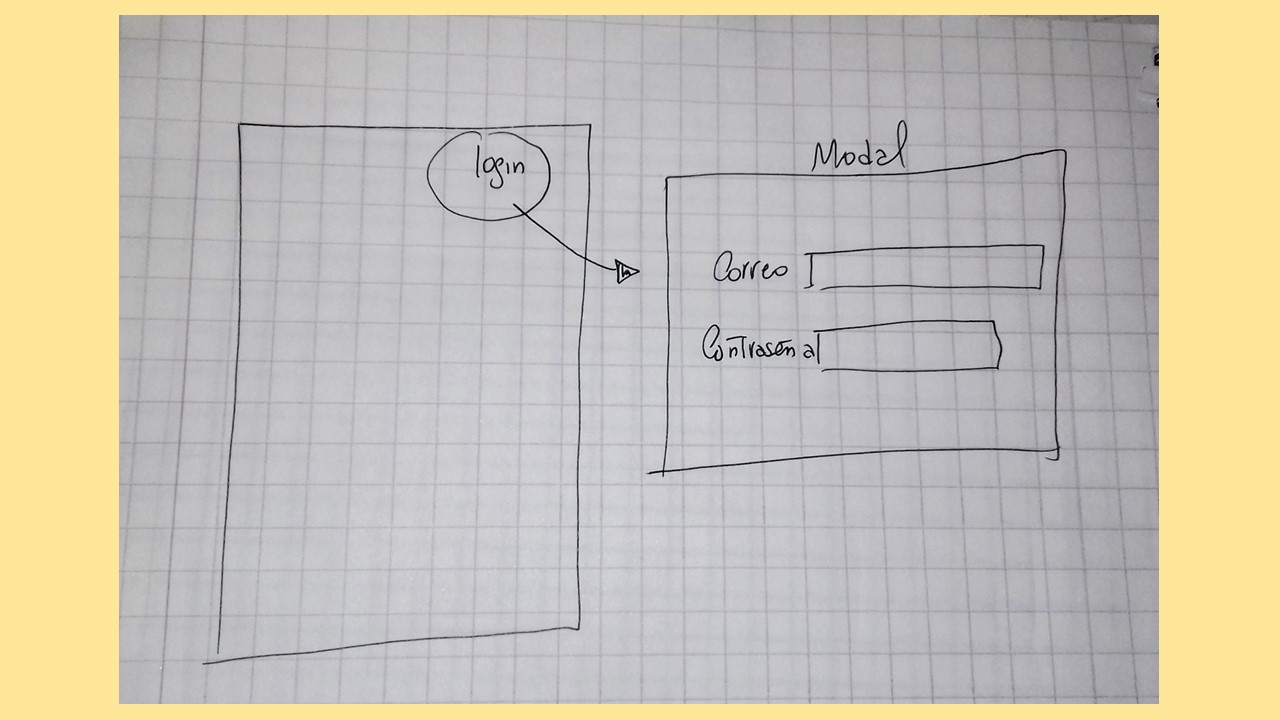 login
Modal
Correo
Contraseña